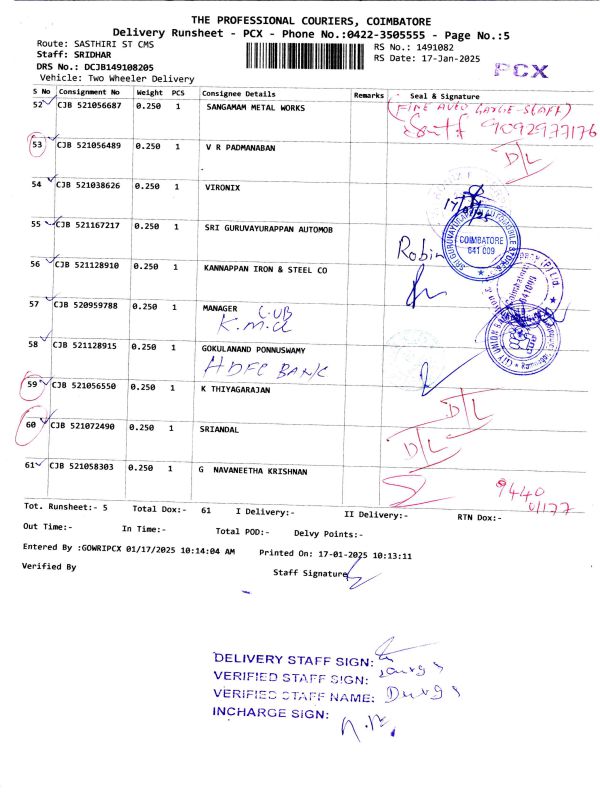 THE PROFESSIONAL COURIERS, COIMBATORE
Delivery Runsheet - PCX - Phone No.:0422-3505555 - Page No.:5
Route: SASTHIRI ST CMS
RS No.: 1491082
Staff: SRIDHAR
RS Date: 17-Jan-2025
DRS No.: DCJB149108205
PCX
Vehicle: Two Wheeler Delivery
S No Consignment No Weight PCS Consignee Details Remarks Seal & Signature
52 CJB 521056687 0.250 1 SANGAMAM METAL WORKS
9092977176
53 CJB 521056489 0.250 1 V R PADMANABAN D/L
54 CJB 521038626 0.250 1 VIRONIX
55 CJB 521167217 0.250 1 SRI GURUVAYURAPPAN AUTOMOB
COIMBATORE
641 009
Robin
56 CJB 521128910 0.250 1 KANNAPPAN IRON & STEEL CO
57 CJB 520959788 0.250 1 MANAGER CUB
58 CJB 521128915 0.250 1 GOKULANAND PONNUSWAMY
HDFC BANK
59 CJB 521056550 0.250 1 K THIYAGARAJAN D/L
60 CJB 521072490 0.250 1 SRIANDAL D/L
61 CJB 521058303 0.250 1 G NAVANEETHA KRISHNAN
9440
Tot. Runsheet:- 5 Total Dox:- 61 I Delivery:- II Delivery:- RTN Dox:-
Out Time:- In Time:- Total POD:- Delvy Points:-
Entered By :GOWRIPCX 01/17/2025 10:14:04 AM Printed On: 17-01-2025 10:13:11
Verified By Staff Signature
DELIVERY STAFF SIGN:
VERIFIED STAFF SIGN:
VERIFIED STAFF NAME:
INCHARGE SIGN: